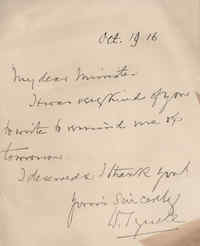 Oct. 19 16
My dear Minister
It was very kind of you
to write to remind me of
tomorrow.
I deserved & thank you!
Yours Sincerely